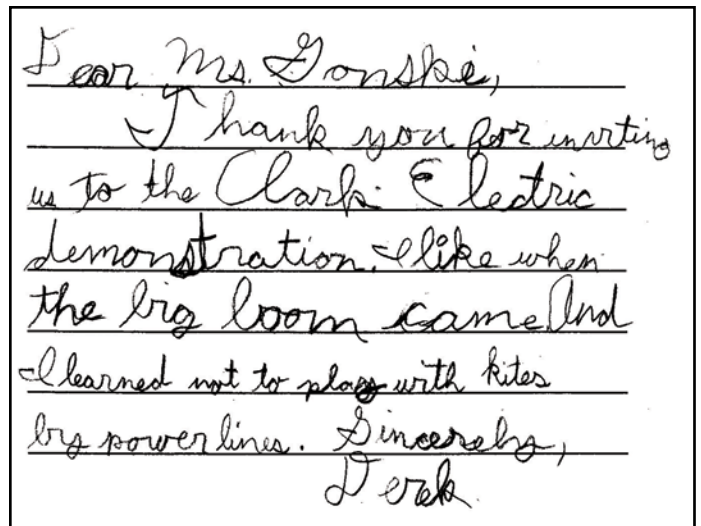 Dear Ms. Gonske,
Thank you for inviting
us to the Clark Electric
demonstration. I like when
the big boom came. And
I learned not to play with kites
by power lines. Sincerely,
Derek